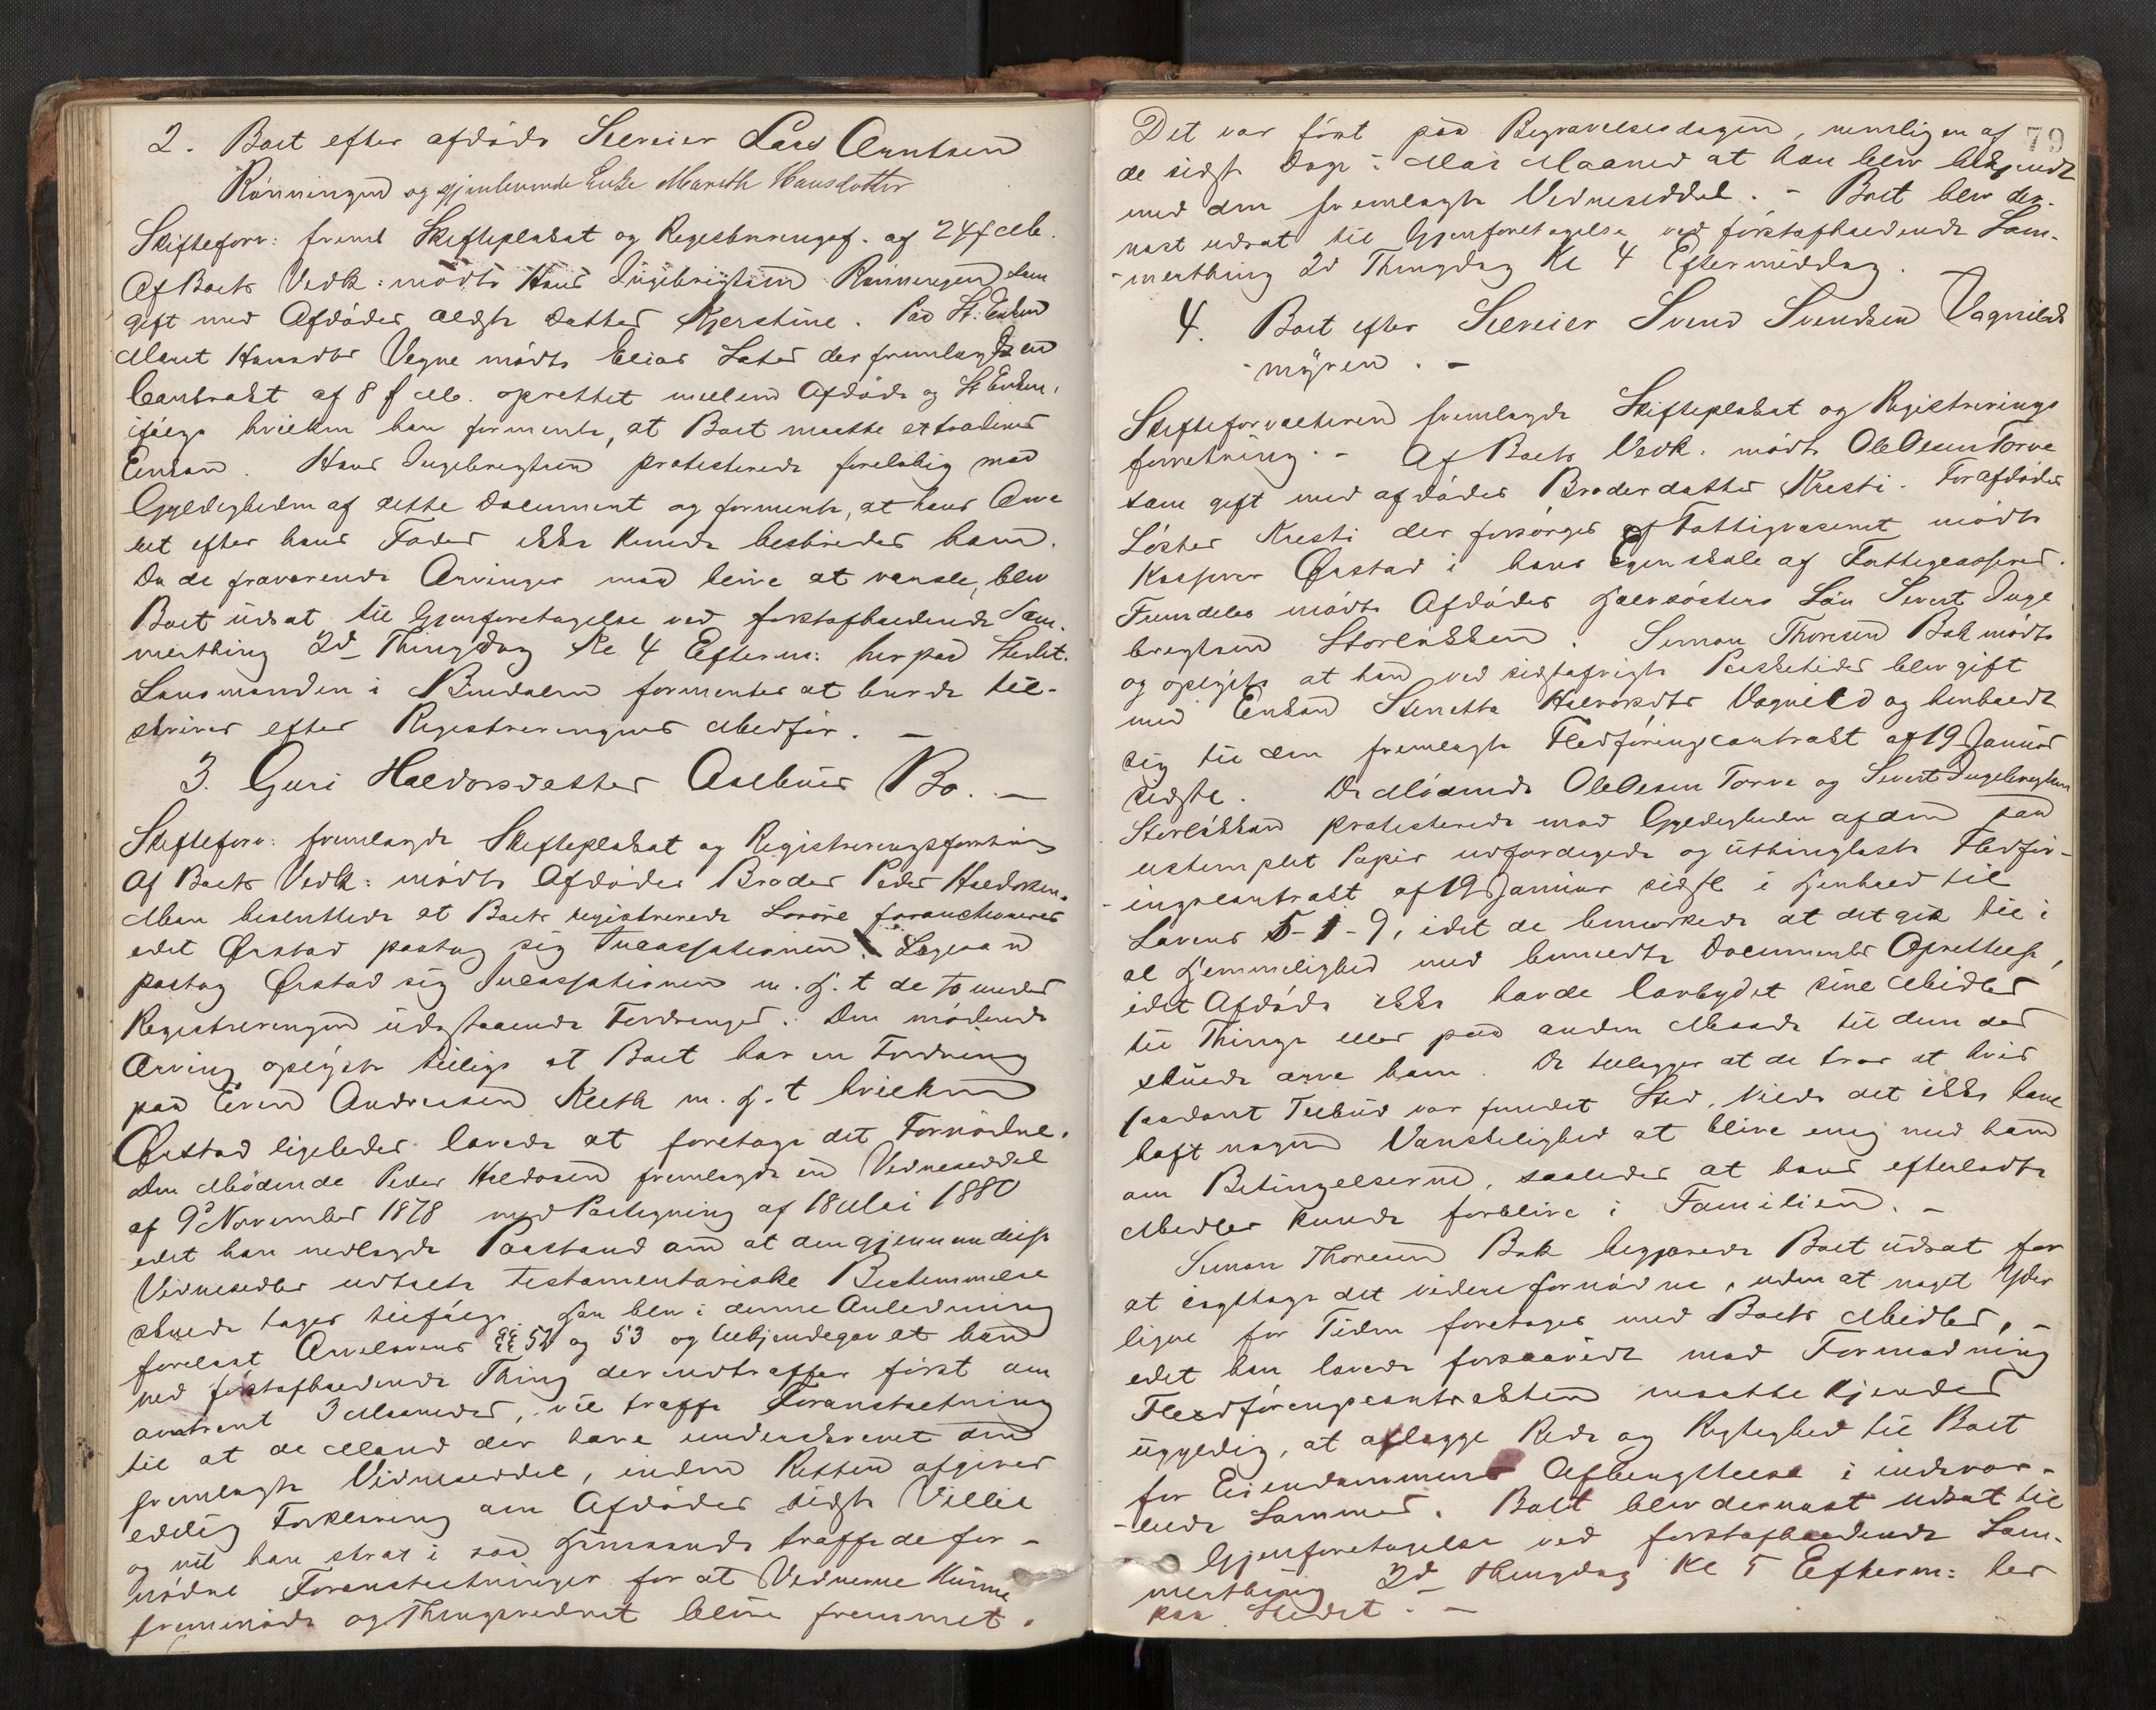 2. Boet efter afdøde Selveier Lars Arntsen
Rönningen og gjenlevende Enke Marith Hansdatter
Skifteforv: freml Skifteplakat og Registreringsf. af 24 f Mb.
Af Boets Vedk: mødte Hans Ingebrigtsen Rönningen som
gift med Afdødes ældste Datter Kjerstine. Paa St. Enken
Marit Hansdtrs Vegne mødte Elias Sæter der fremlagde en
Contrakt af 8 f Mb. oprettet mellem Afdøde og St Enken,
ifølge hvilken han formente, at Boet maatte extraderes
Enken. Hans Ingebrigtsen protesterede foreløbig mod
Gyldigheden af dette Document og formente, at hans Arve
ret efter hans Fader ikke kunde bestrides ham.
Da de fraværende Arvinger maa blive at varsle, blev
Boet udsat til Gjenforetagelse ved førstafholdende Som-
merthing 2d Thingdag Kl 4 Efterm: her paa Stedet.
Lensmanden i Rindalen formentes at burde til-
skrives efter Registreringens Medfør. —
3. Guri Haldorsdatter Aselbües Bo. —
Skifteforv: fremlagde Skifteplakat og Registreringsforretning
Af Boets Vedk: mødte Afdødes Broder Peder Haldorsen.
Man besluttede at Boets registrerede Løsøre forauctioneres
idet Ørstad paatog sig Incassationen. Ligesaa
paatog Ørstad sig Incassationen m. H. t de to under
Registreringen udestaaende Fordringer. Den mødende
Arving oplyste tillige at Boet har en Fordring
paa Even Andreasen Kleth m. H. t hvilken
Ørstad ligeledes lovede at foretage det Fornødne.
Den Mødende Peder Haldosen fremlagde en Vidneseddel
af 9de November 1878 med Paategning af 18 Mai 1880
idet han nedlagde Paastand om at den gjennem disse
Vidnesedler udtalte testamentariske Bestemmelse
skulde tages tilfølge. Han blev i denne Anledning
forelæst Arvelovens §§ 52 og 53 og tilkjendegav at han
ved førstafholdende Thing der indtræffer først om
omtrent 3 Maaneder, vil træffe Foranstaltning
til at de Mænd der have underskrevet den
fremlagte Vidneseddel, inden Retten afgiver
edelig Forklaring om Afdødes sidste Villie
og vil han strax i saa Henseende træffe de for-
nødne Foranstaltninger for at Vidnerne kunne
fremmøde og Thingsvidnet blive fremmet.
79
Det var først paa Begravelsesdagen, nemligen af
de sidste Dage i Mai Maaned at han blev bekjendt
med den fremlagte Vidneseddel. – Boet blev der-
næst udsat til Gjenforetagelse ved førstafholdende Som-
-merthing 2d Thingdag Kl 4 Eftermiddag.
4. Boet efter Selveier Svend Svendsen Vagnilds
-mÿren. –
Skifteforvalteren fremlagde Skifteplakat og Registrerings
forretning. – Af Boets Vedk. mødte Ole Olsen Torve
som gift med afdødes Broderdatter Kresti. For afdødes
Søster Kresti der forsørges af Fattigvæsenet mødte
Kasserer Ørstad i hans Egenskab af Fattigkasserer.
Fremdeles mødte Afdødes Halvsøsters Søn Sivert Inge
brigtsen Storløkken. Simon Thoresen Bak mødte
og oplyste at han ved sidstafvigte Paasketider blev gift
med Enken Sleneth Halvorsdtr Vagnild og henholdt
sig til den fremlagte Fledføringscontrakt af 19 Januar
sidste. De Mødende Ole Olsen Torve og Sivert Ingebrigtsen
Storløkken protesterede mod Gyldigheden af den paa
ustemplet Papir udfærdigede og uthinglæste Fledfør-
-ingscontrakt af 19 Januar sidste i Henhold til
Lovens 5-1-9, idet de bemærkede at det gik til i
al Hemmelighed med bemeldte Documents Oprettelse,
idet Afdøde ikke havde lovbydet sine Midler
til Things eller paa anden Maade til dem der
skulde arve ham. De tillægger at de tror at hvis
saadant Tilbud var fundet Sted, vilde det ikke have
haft nogen Vanskelighed at blive enig med ham
om Betingelserne, saaledes at hans efterladte
Midler kunde forblive i Familien. –
Simon Thoresen Bak begjærede Boet udsat for
at iagttage det videre fornødne, uden at noget Yder
ligere for Tiden foretages med Boets Midler, –
idet han lovede forsaavidt mod Formodning
Fledføringscontrakten maatte kjendes
ugyldig, at aflægge Rede og Rigtighed til Boet
for Eiendommens Afbenyttelse i indevær-
-ende Sommer. Boet blev dernæst udsat til
Gjenforetagelse ved førstafholdende Som-
merthing 2d Thingdag Kl 5 Efterm: her
paa Stedet. –